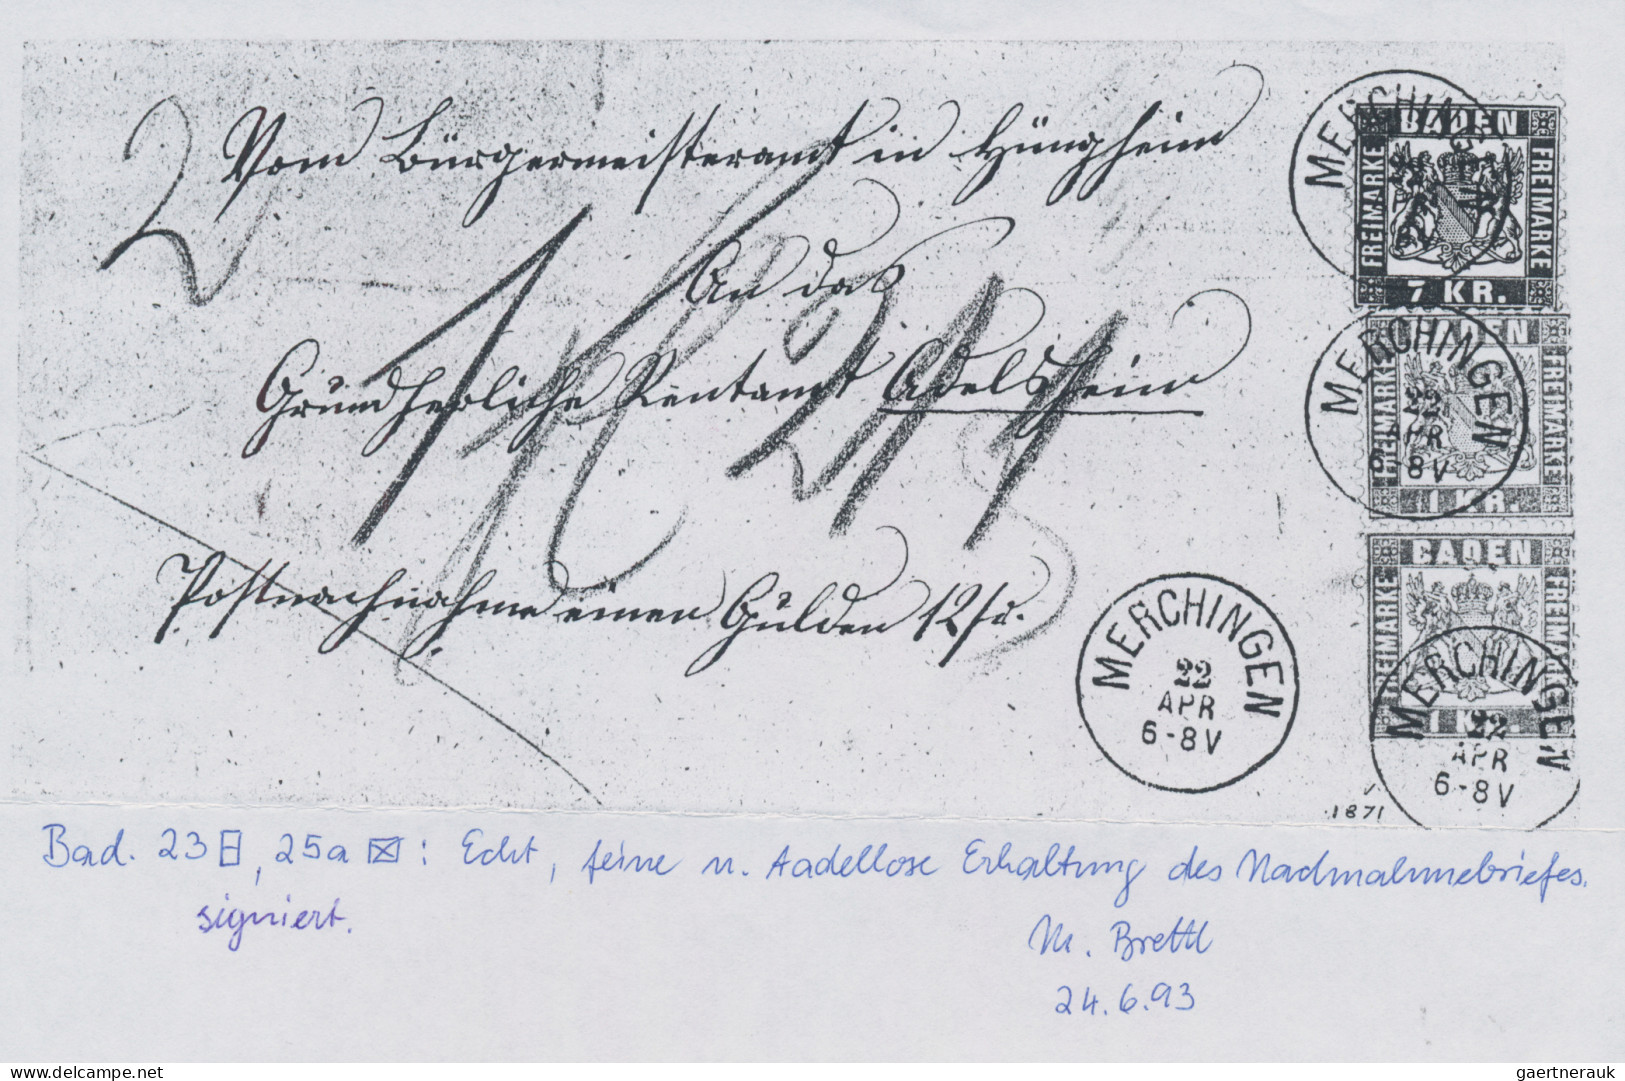 2
Vom Bürgermeisteramt in Hüngheim
An das
Grundherrliche Rentamt Adelsheim
Postnachnahme einen Gulden 12
MERCHINGEN
BADEN
FREIMARKE
FREIMARKE
7 KR.
MERCHINGEN
22
APR
6-8V
BADEN
FREIMARKE
FREIMARKE
1 KR.
BADEN
FREIMARKE
FREIMARKE
1 KR.
MERCHINGEN
22
APR
6-8V
MERCHINGEN
22
APR
6-8V
1871
Bad. 23, 25a: Echt, feine u. tadellose Erhaltung des Nachnahmebriefes.
signiert.
M. Brettl
24.6.93
Erstellt am 22/12/2023
gaertnerauk